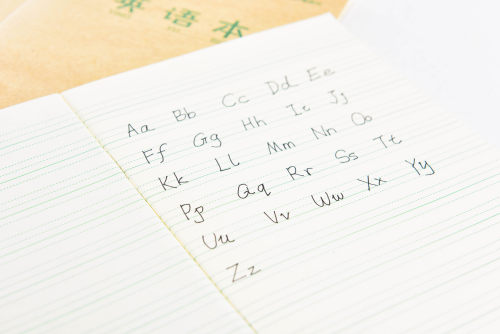 英语本
Aa Bb Cc Dd Ee
Ff Gg Hh Ii Jj
Kk Ll Mm Nn Oo
Pp Qq Rr Ss Tt
Uu Vv Ww Xx Yy
Zz